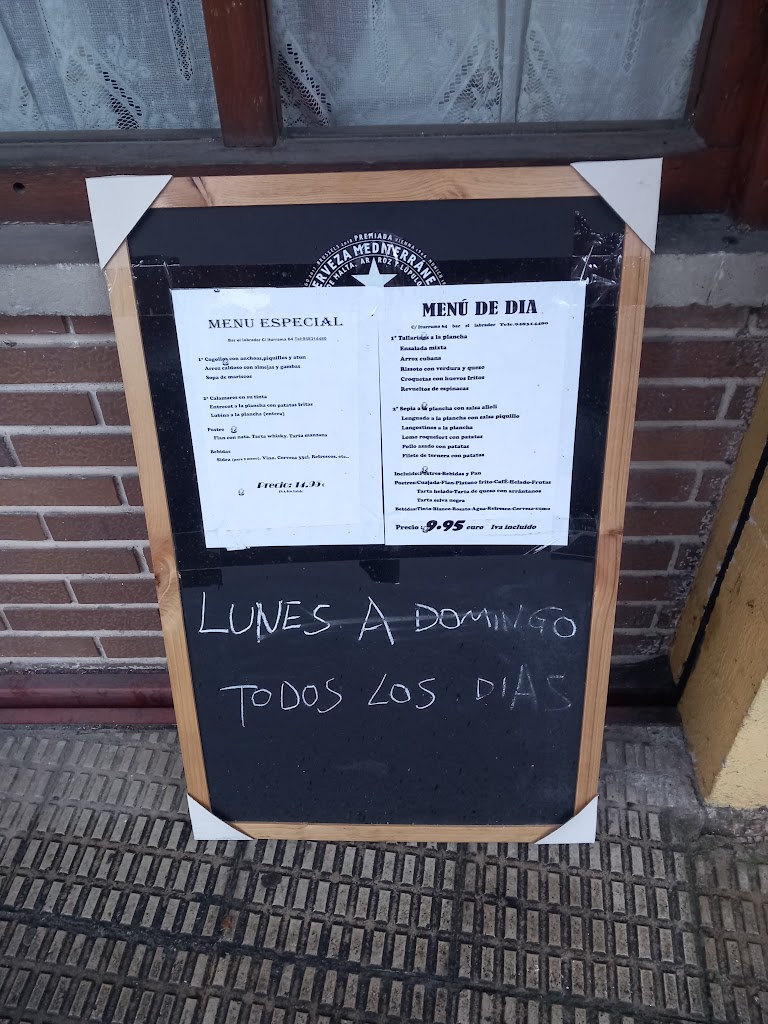 PREMIADA
CERVEZA MEDITERRÁNEA
DE MALTA, ARROZ Y LÚPULO
MENU ESPECIAL
Bar el labrador C/ Iturrama 64
1º Cogollos con anchoas,piquillos y atun
Arroz caldoso con almejas y gambas
Sopa de mariscos
2º Calamares en su tinta
Entrecot a la plancha con patatas fritas
Lubina a la plancha (entera)
Postre
Flan con nata. Tarta whisky. Tarta manzana
Bebidas
Sidra Vino. Cerveza 33cl. Refrescos, etc..
Precio: 14.95 €
IVA Incluido
MENÚ DE DIA
C/ Iturrama 64 bar el labrador
1º Tallarines a la plancha
Ensalada mixta
Arroz cubana
Rissoto con verdura y queso
Croquetas con huevos fritos
Revueltos de espinacas
2º Sepia a la plancha con salsa alioli
Lenguado a la plancha con salsa piquillo
Langostinos a la plancha
Lomo roquefort con patatas
Pollo asado con patatas
Filete de ternera con patatas
Incluido:Postres-Bebidas y Pan
Postres:Cuajada-Flan-Platano frito-Café-Helado-Frutas
Tarta helado-Tarta de queso con arrántanos
Tarta selva negra
Bebidas:Tinto-Blanco-Rosato-Agua-Refresco-Cerveza-zumo
Precio : 9.95 euro Iva incluido
LUNES A DOMINGO
TODOS LOS DIAS